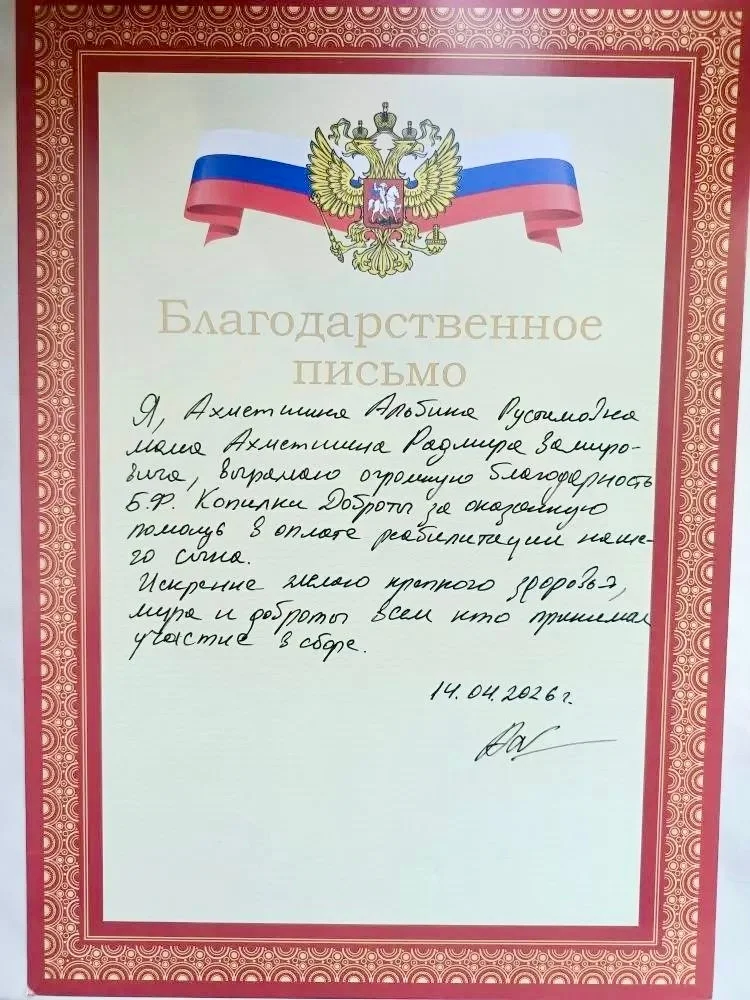 Благодарственное
письмо
Я, Ахметшина Альбина Рустамовна
мама Ахметшина Радмира Замиро-
вича, выражаю огромную благодарность
Б.Ф. Копилки Доброты за оказанную
помощь в оплате реабилитации наше-
го сына.
Искренне желаю крепкого здоровья,
мира и доброты всем кто принимал
участие в сборе.
14.04.2026 г.